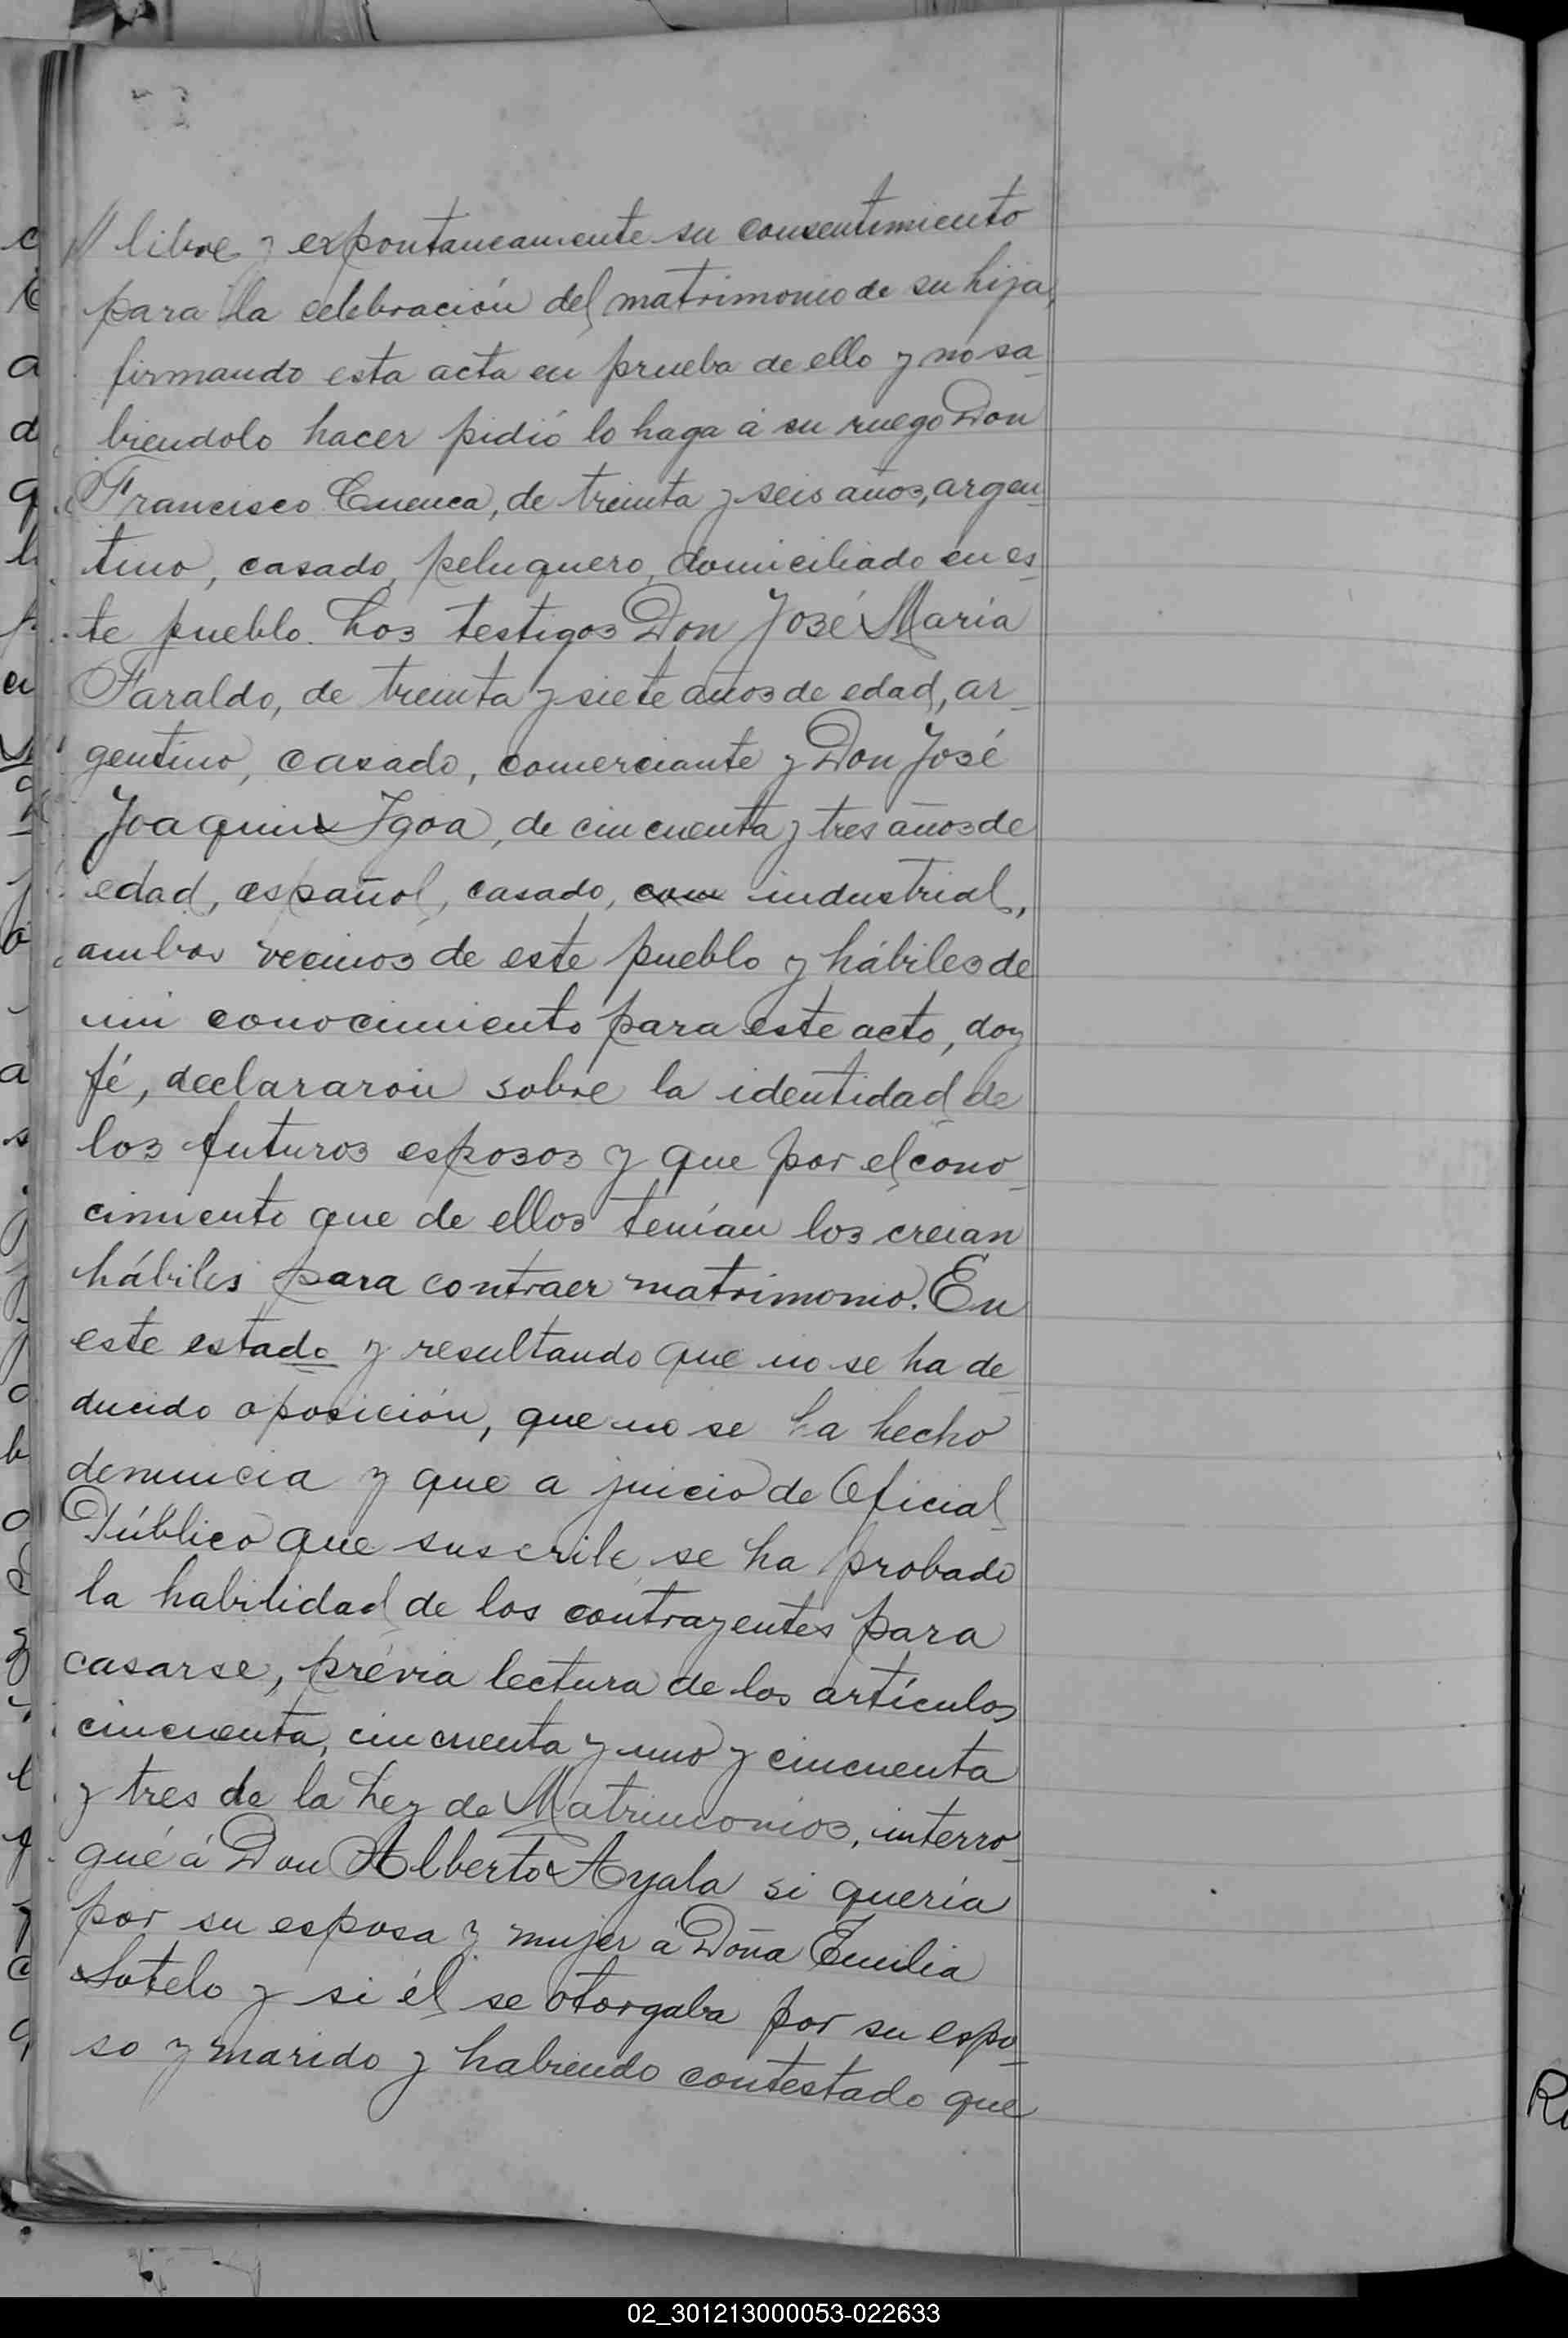 // libre y expontaneamente su consentimiento
para la celebración del matrimonio de su hija,
firmando esta acta en prueba de ello y no sa-
biendolo hacer pidió lo haga á su ruego Don
Francisco Cuenca, de treinta y seis años, argen-
tino, casado, peluquero, domiciliado en es-
te pueblo. Los testigos Don José María
Faraldo, de treinta y siete años de edad, ar-
gentino, casado, comerciante y Don José
Joaquin Igoa, de cincuenta y tres años de
edad, español, casado, com industrial,
ambos vecinos de este pueblo y hábiles de
mi conocimiento para este acto, doy
fé, declararon sobre la identidad de
los futuros esposos y que por el cono-
cimiento que de ellos tenían los creian
hábiles para contraer matrimonio. En
este estado y resultando que no se ha de-
ducido oposición, que no se ha hecho
denuncia y que a juicio de Oficial
Público que suscribe, se ha probado
la habilidad de los contrayentes para
casarse, prévia lectura de los artículos
cincuenta, cincuenta y uno y cincuenta
y tres de la Ley de Matrimonios, interro-
gué á Don Alberto Ayala si quería
por su esposa y mujer á Doña Emilia
Sotelo y si él se otorgaba por su espo-
so y marido y habiendo contestado que
02_301213000053-022633